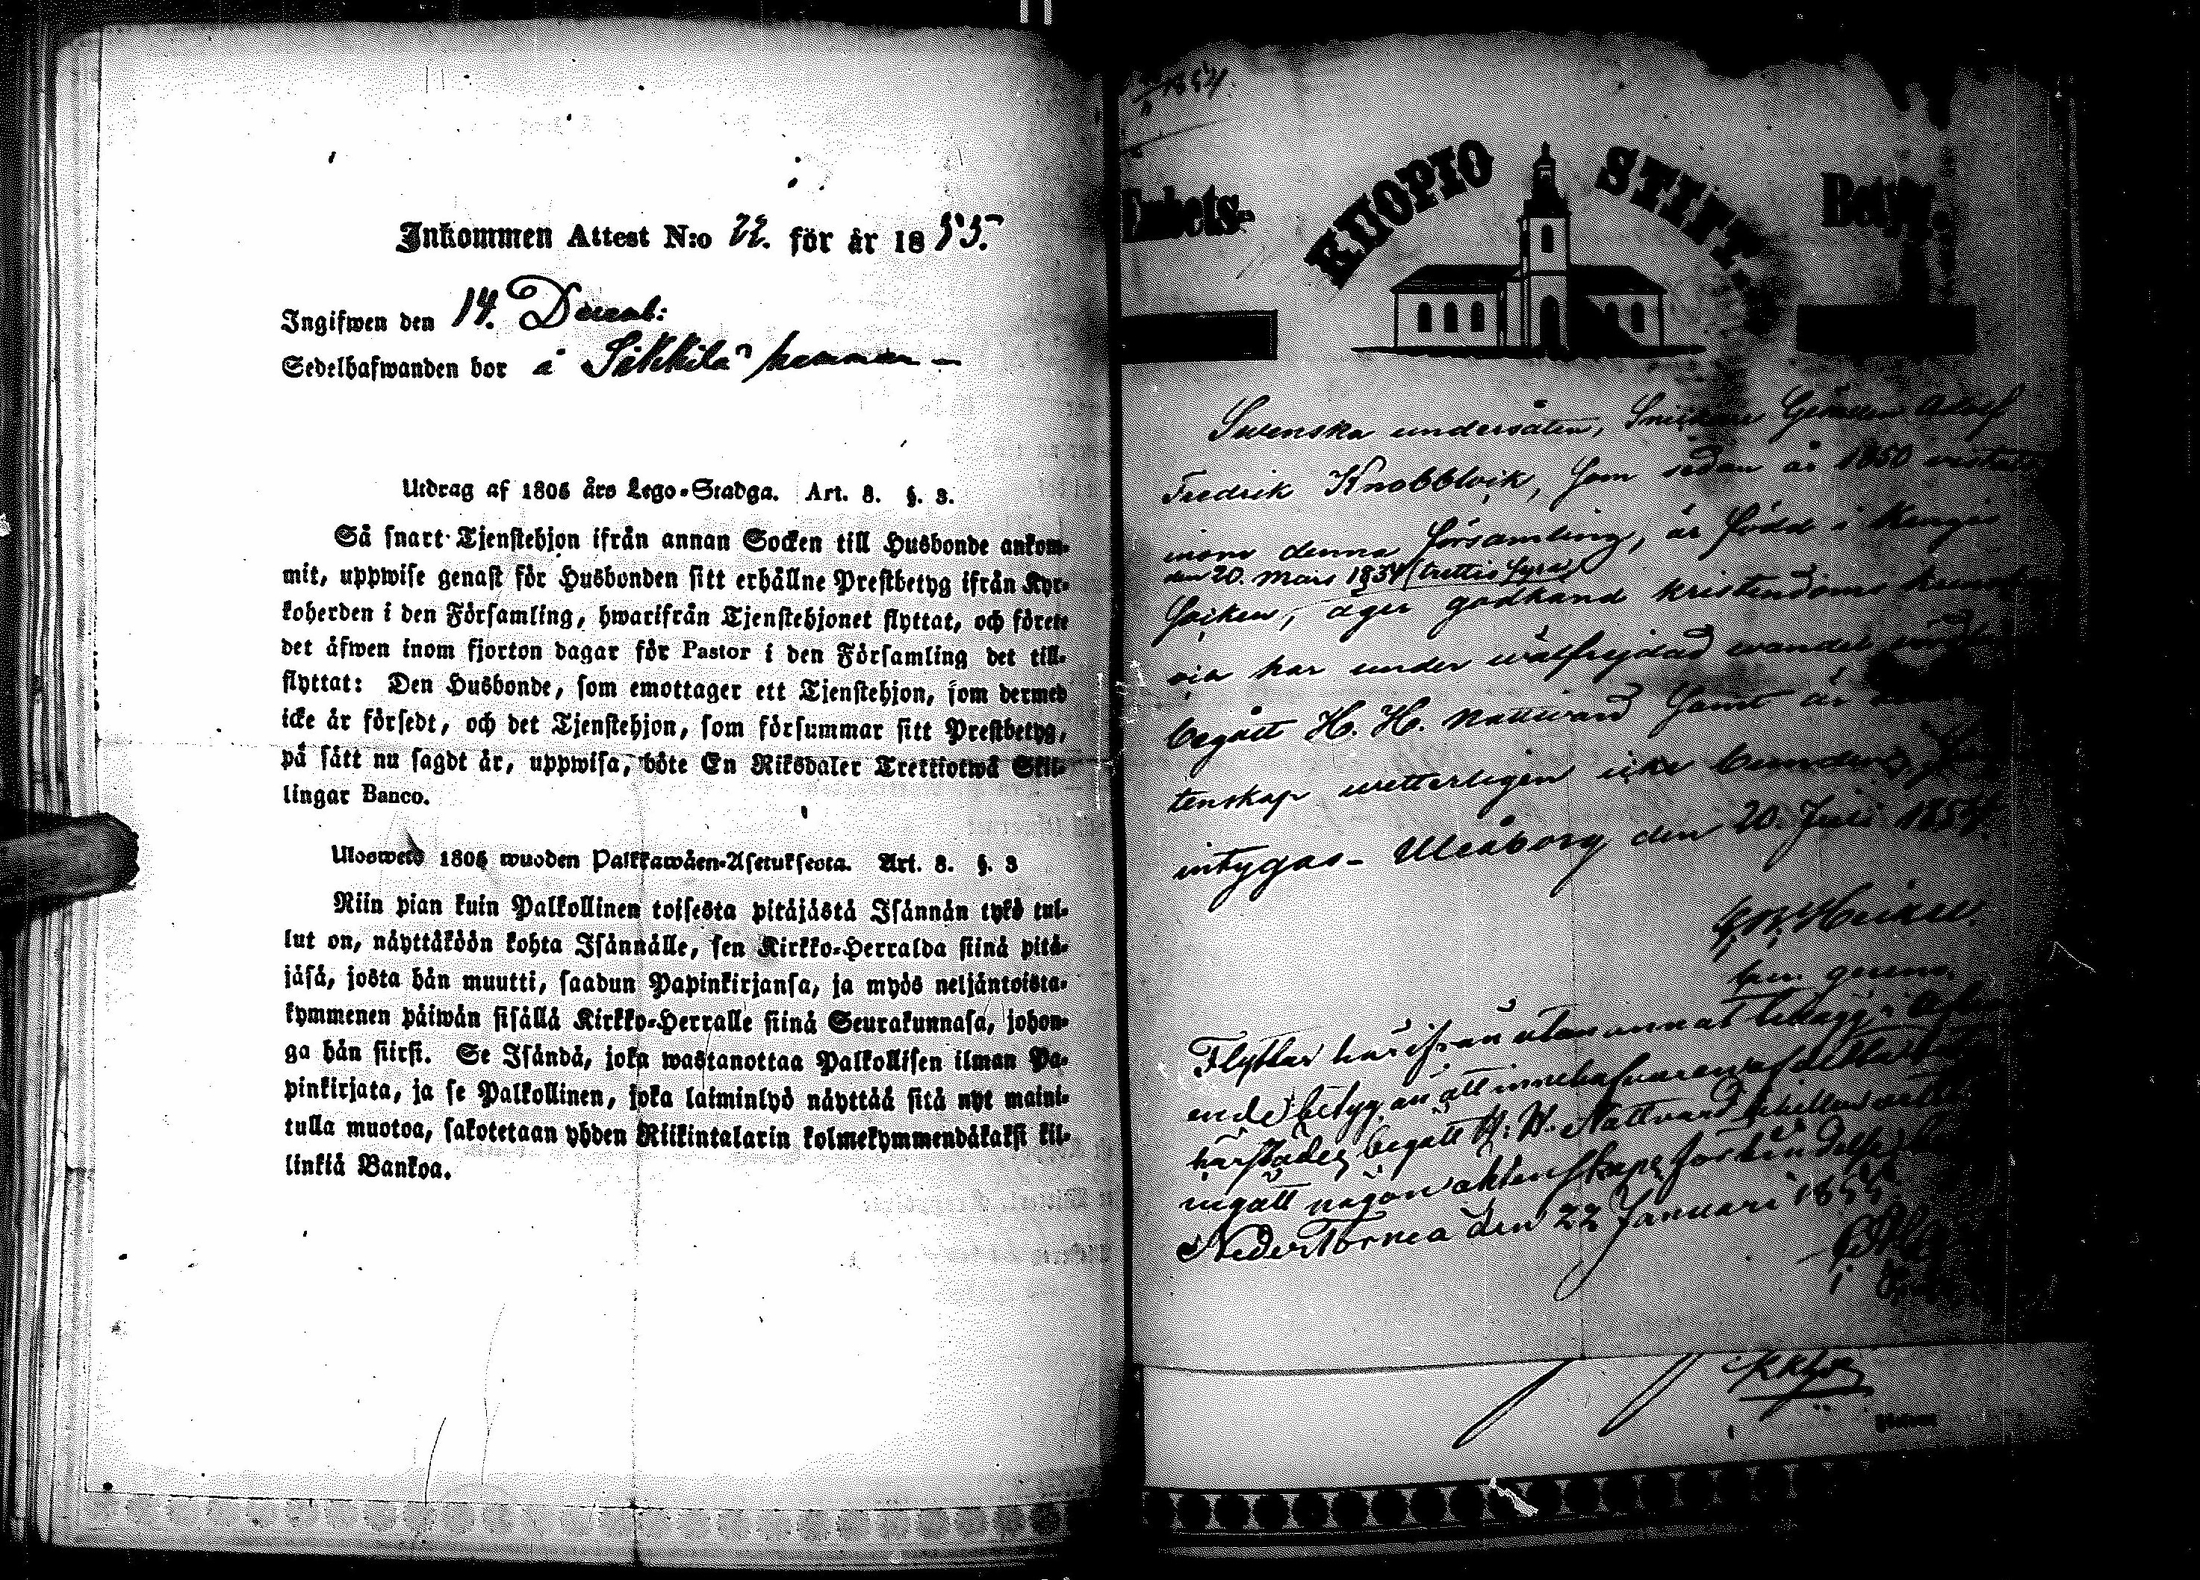 Inkommen Attest N:o 22. för år 1855.
Ingifwen den 14. Decemb:
Sedelhafwanden bor å Sikkilä hemman
Utdrag af 1805 års Lego-Stadga. Art. 8. §. 3.
Så snart Tjenstehjon ifrån annan Socken till Husbonde ankom-
mit, uppwise genast för Husbonden sitt erhållne Prestbetyg ifrån Kyr-
koherden i den Församling, hwarifrån Tjenstehjonet flyttat, och förete
det äfwen inom fjorton dagar för Pastor i den Församling det till-
flyttat: Den Husbonde, som emottager ett Tjenstehjon, som dermed
icke är försedt, och det Tjenstehjon, som försummar sitt Prestbetyg,
på sätt nu sagdt är, uppwisa, böte En Riksdaler Trettiotwå Skil-
lingar Banco.
Uloswetö 1805 wuoden Palkkawäen-Asetuksesta. Art. 8. §. 3
Niin pian kuin Palkollinen toisesta pitäjästä Isännän tykö tul-
lut on, näyttäköön kohta Isännälle, sen Kirkko-Herralda siinä pitä-
jäsä, josta hän muutti, saadun Papinkirjansa, ja myös neljäntoista-
kymmenen päiwän sisällä Kirkko-Herralle siinä Seurakunnasa, johon-
ga hän siirsi. Se Isändä, joka wastanottaa Palkollisen ilman Pa-
pinkirjata, ja se Palkollinen, joka laiminlyö näyttää sitä nyt maini-
tulla muotoa, sakotetaan yhden Riikintalarin kolmekymmendäkaksi kil-
linkiä Bankoa.
1854
Embets-
KUOPIO STIFT.
Betyg.
Swenska undersåten, Snickare Gesällen Adolf
Fredrik Knobblvik, som sedan år 1850 vistats
inom denna församling, är född i Kengis
den 20. Mars 1834 (trettio fyra)
Socken, äger godkänd kristendoms kunskap
och har under wälfrejdad wandel
begått H. H. Nattvard samt är
tenskap wetterligen icke bunden,
intygas- Uleåborg den 20. Juli 1854.
Flyttar härifrån utan annat tillägg i
ende betyg än att innehafvaren af detta
härstädes begått H. H. Nattvard
ingått någon äktenskaps förbindelse
NederTorneå den 22 Januari 1855.